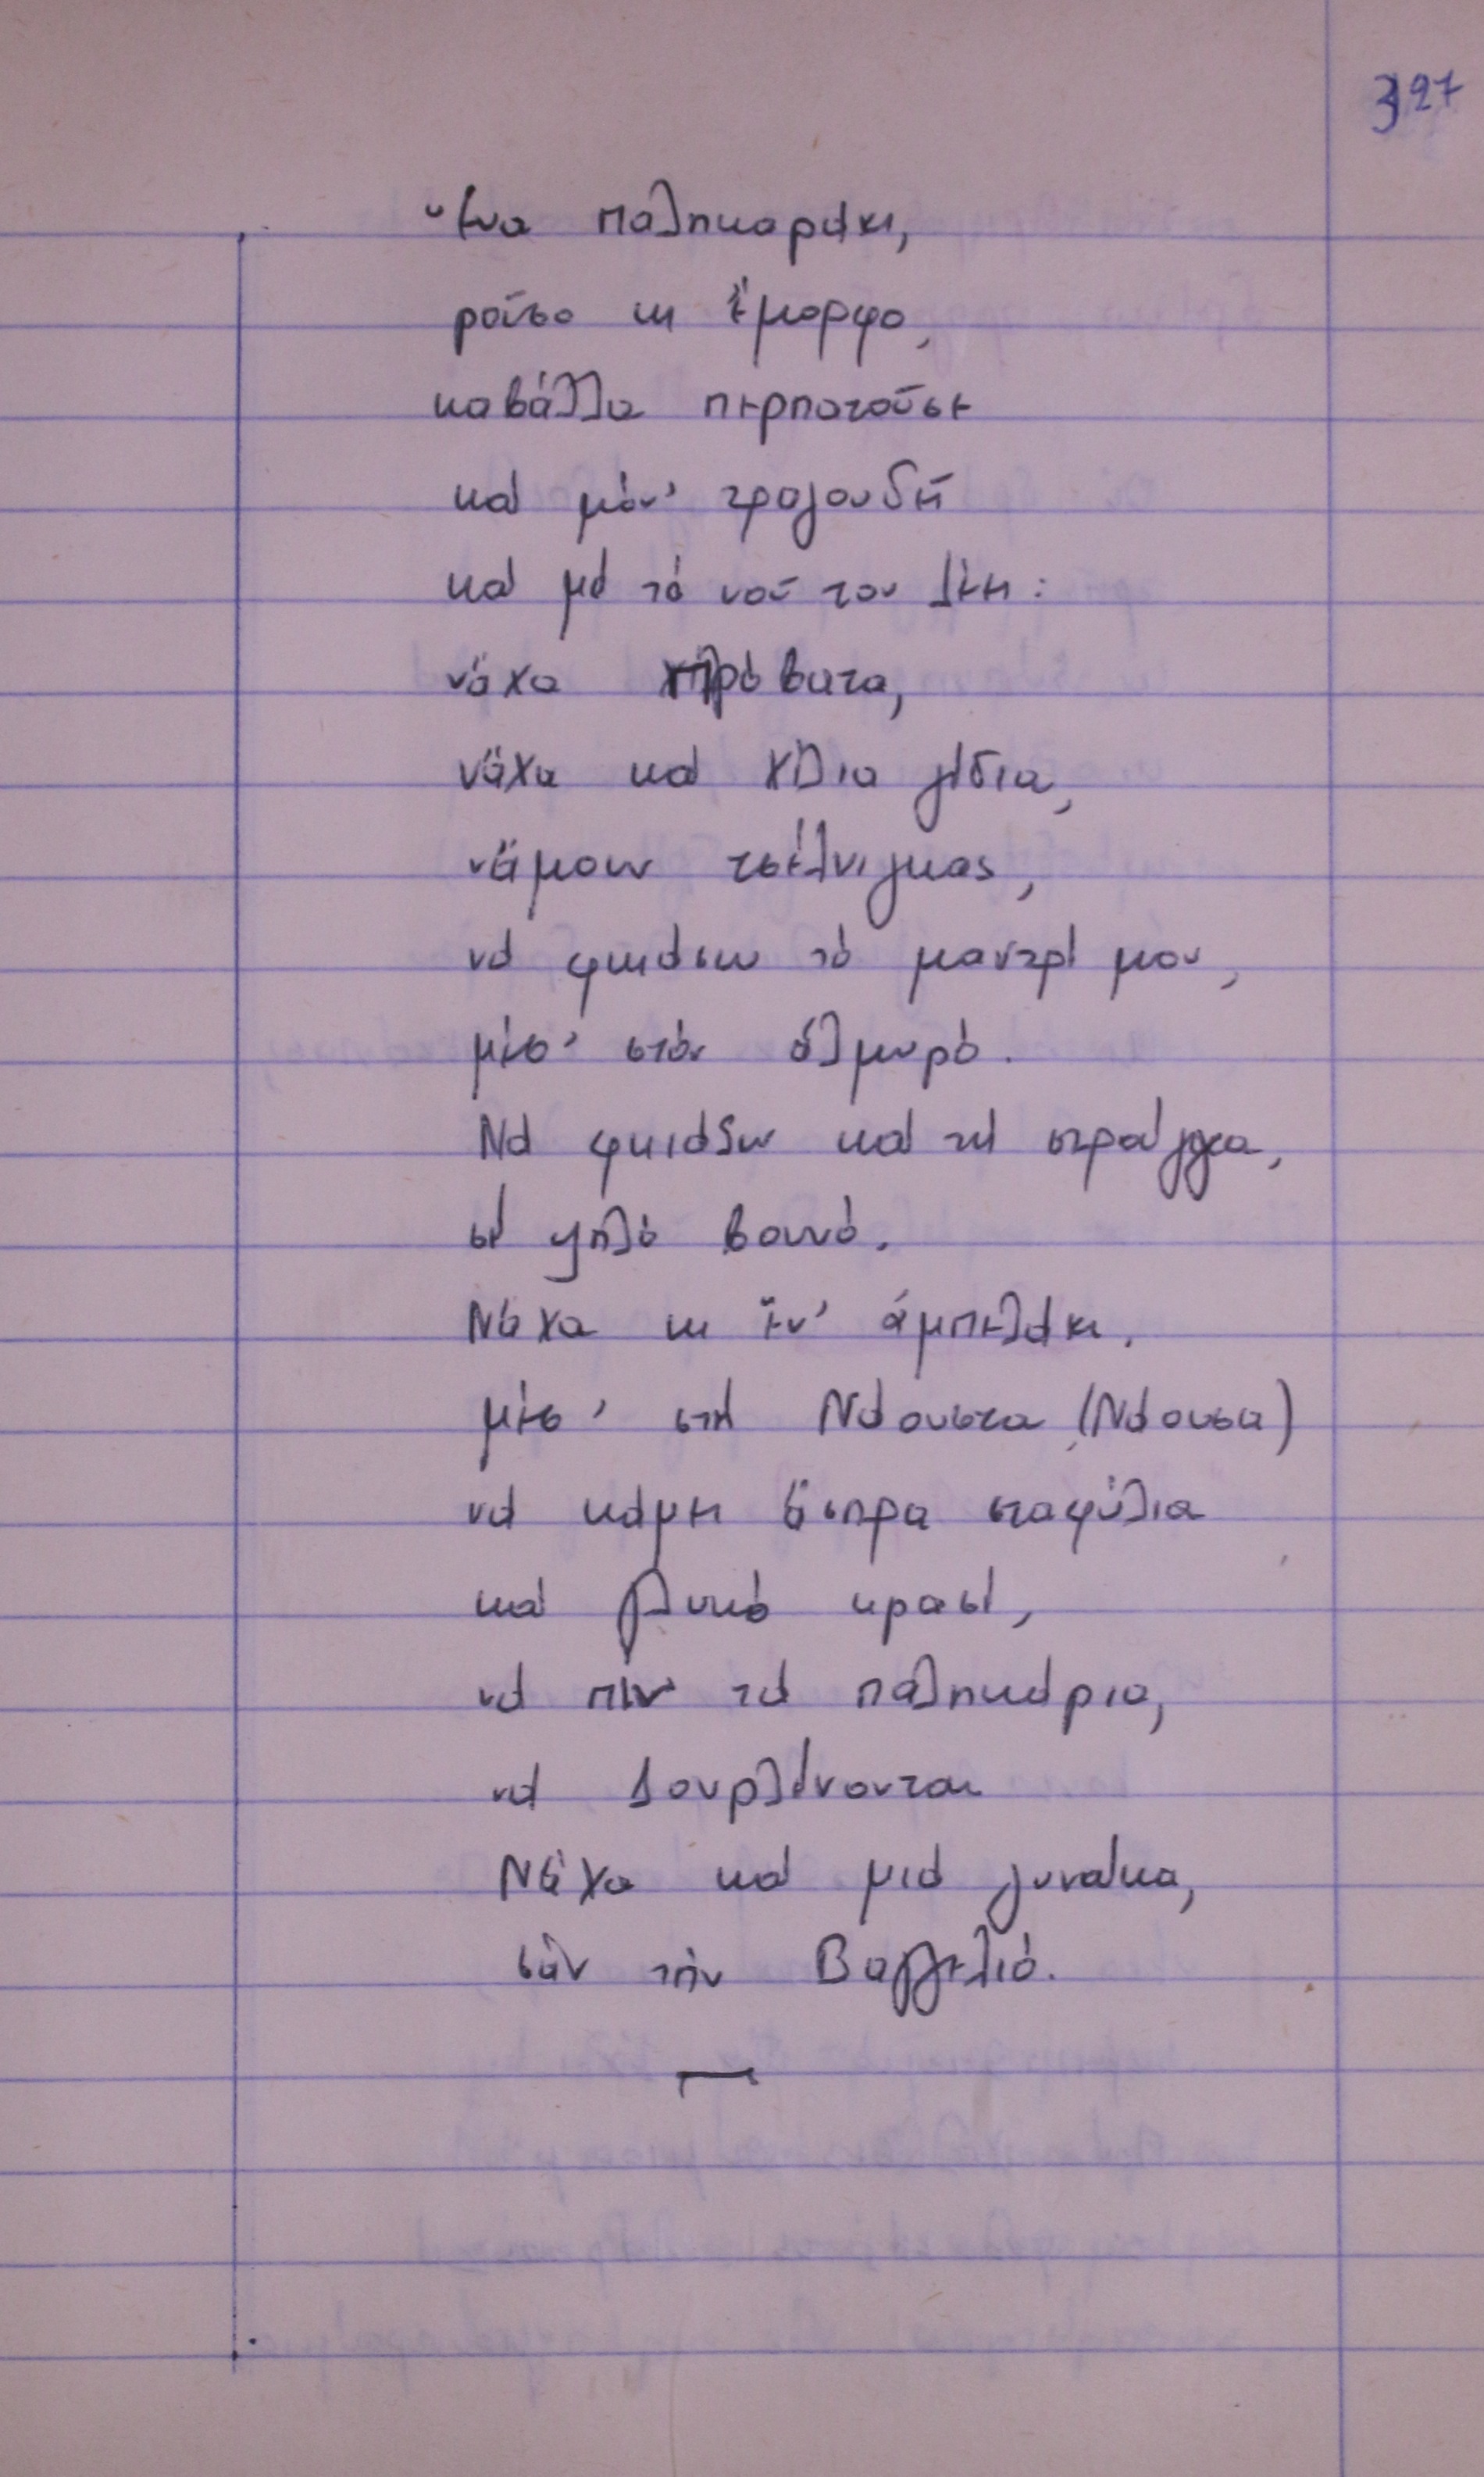 327
Ἕνα παληκαράκι,
ροῦσο κι ἔμορφο,
καβάλλα περπατοῦσε
καὶ μόν' τραγουδεῖ
καὶ μὲ τὸ νοῦ του λέει:
νἄχα πρόβατα,
νἄχα καὶ χίλια γίδια,
νἄμουν τσέλνιγκας,
νὰ φκιάσω τὸ μαντρί μου,
μέσ' στὸν ἁλμυρό.
Νὰ φκιάσω καὶ τὴ στραίγγα,
σὲ ψηλὸ βουνό.
Νἄχα κι ἕν' ἀμπελάκι.
μέσ' στὴ Νάουστα (Νάουσα)
νὰ κάμει ἄσπρα σταφύλια
καὶ γλυκὸ κρασί,
νὰ πίν' τὰ παληκάρια,
νὰ λουρλένονται
Νἄχα καὶ μιὰ γυναίκα,
σὰν τὴν Βαγγελιό.